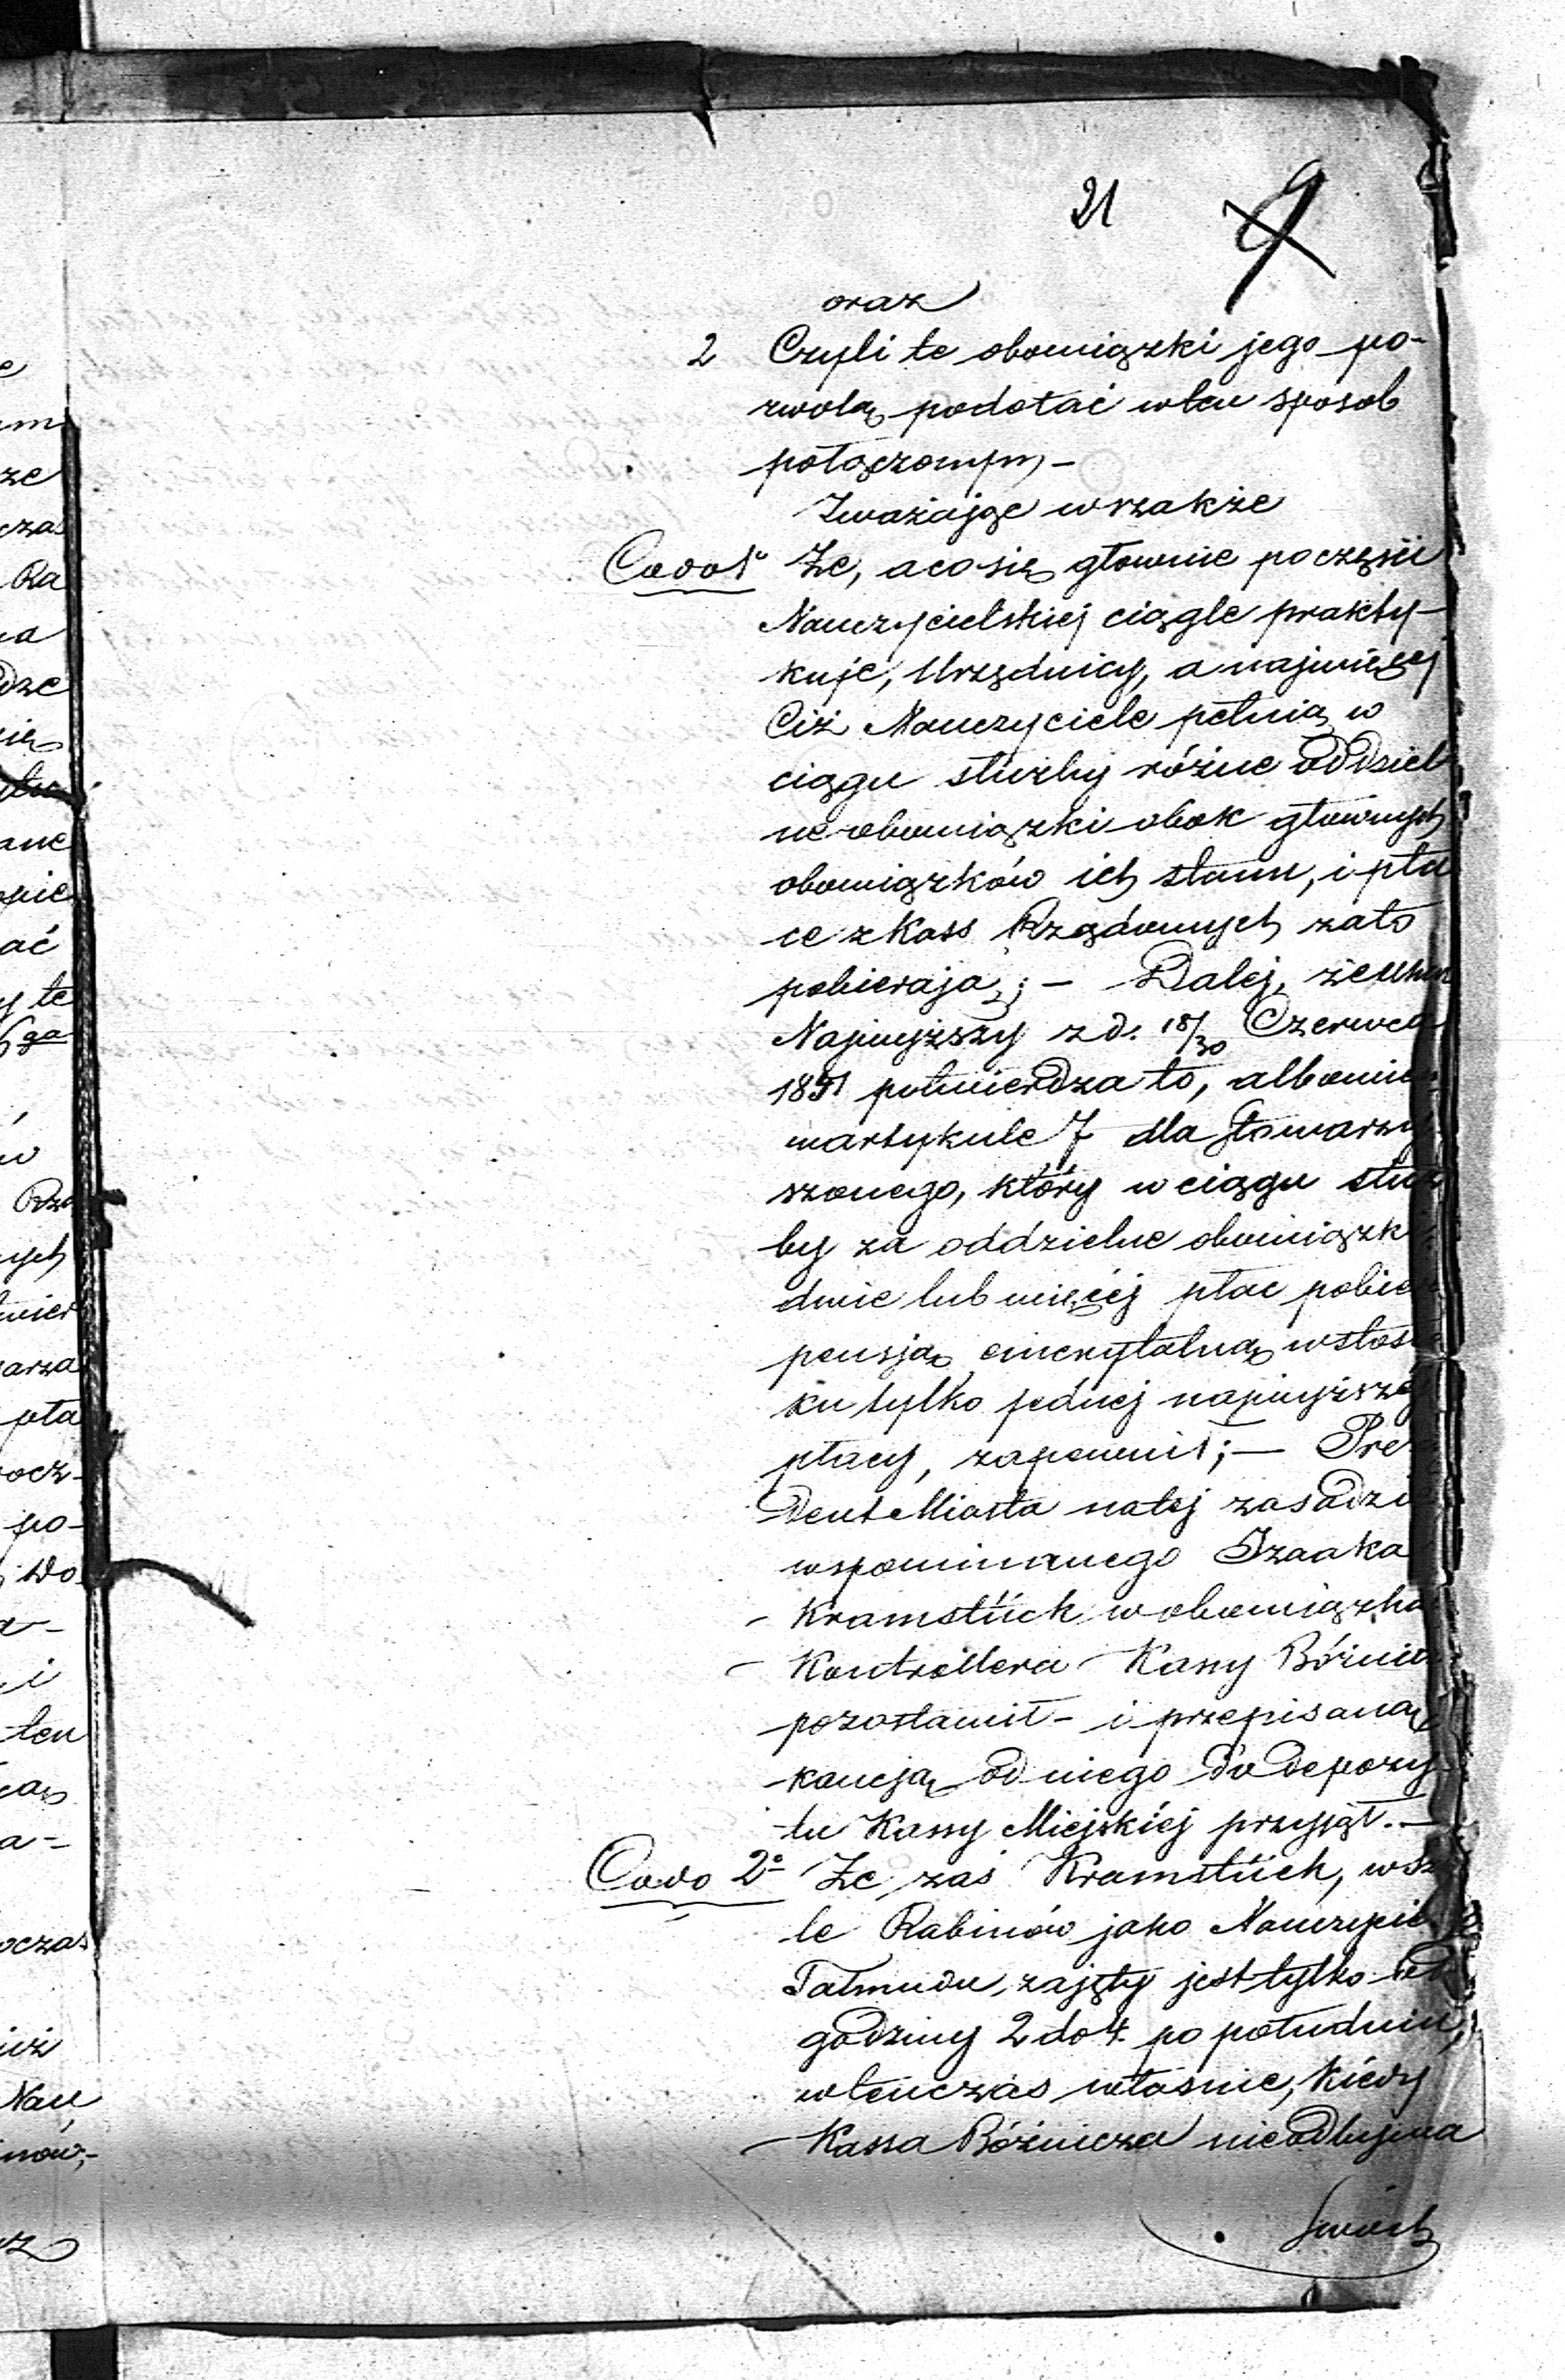 21 9
oraz
2 Czyli te obowiązki jego po-
zwolą podołać w ten sposob
połączonym, -
Zważając wszakże
Co do 1° Że, a co się głownie po części
Nauczycielskiej ciągle prakty-
kuje, Urzędnicy, a najwięcej
Ciż Nauczyciele pełnią w
ciągu służby różne oddziel
ne obowiązki obok głownych
obowiązków ich stanu, i pła
ce z Kass Rządowych za to
pobierają; - Dalej, że
Najwyższy z d. 18/30 Czerwca
1851 potwierdza to, albowie
w artykule 7 dla stowarzy
szonego, który w ciągu służ
by za oddzielne obowiązk
dwie lub więcej płac pobie
pensją emerytalną w stosu
ku tylko jednej najwyższej
płacy, zapewnił; - Prez
dent Miasta na tej zasadzi
wspominanego Izaaka
- Kramsztück w obowiązka
- Kontrollera Kassy Bóżnic
pozostawił - i przepisaną
kaucją od niego do depozy
tu Kassy Miejskiéj przyjął. -
Co do 2° Że zaś Kramsztück, w Sz
le Rabinów jako Nauczyciel
Talmudu, zajęty jest tylko od
godziny 2 do 4. po południu,
wtenczas własnie, kiédy
- Kassa Bóżnicza nie odbywa
Swoich